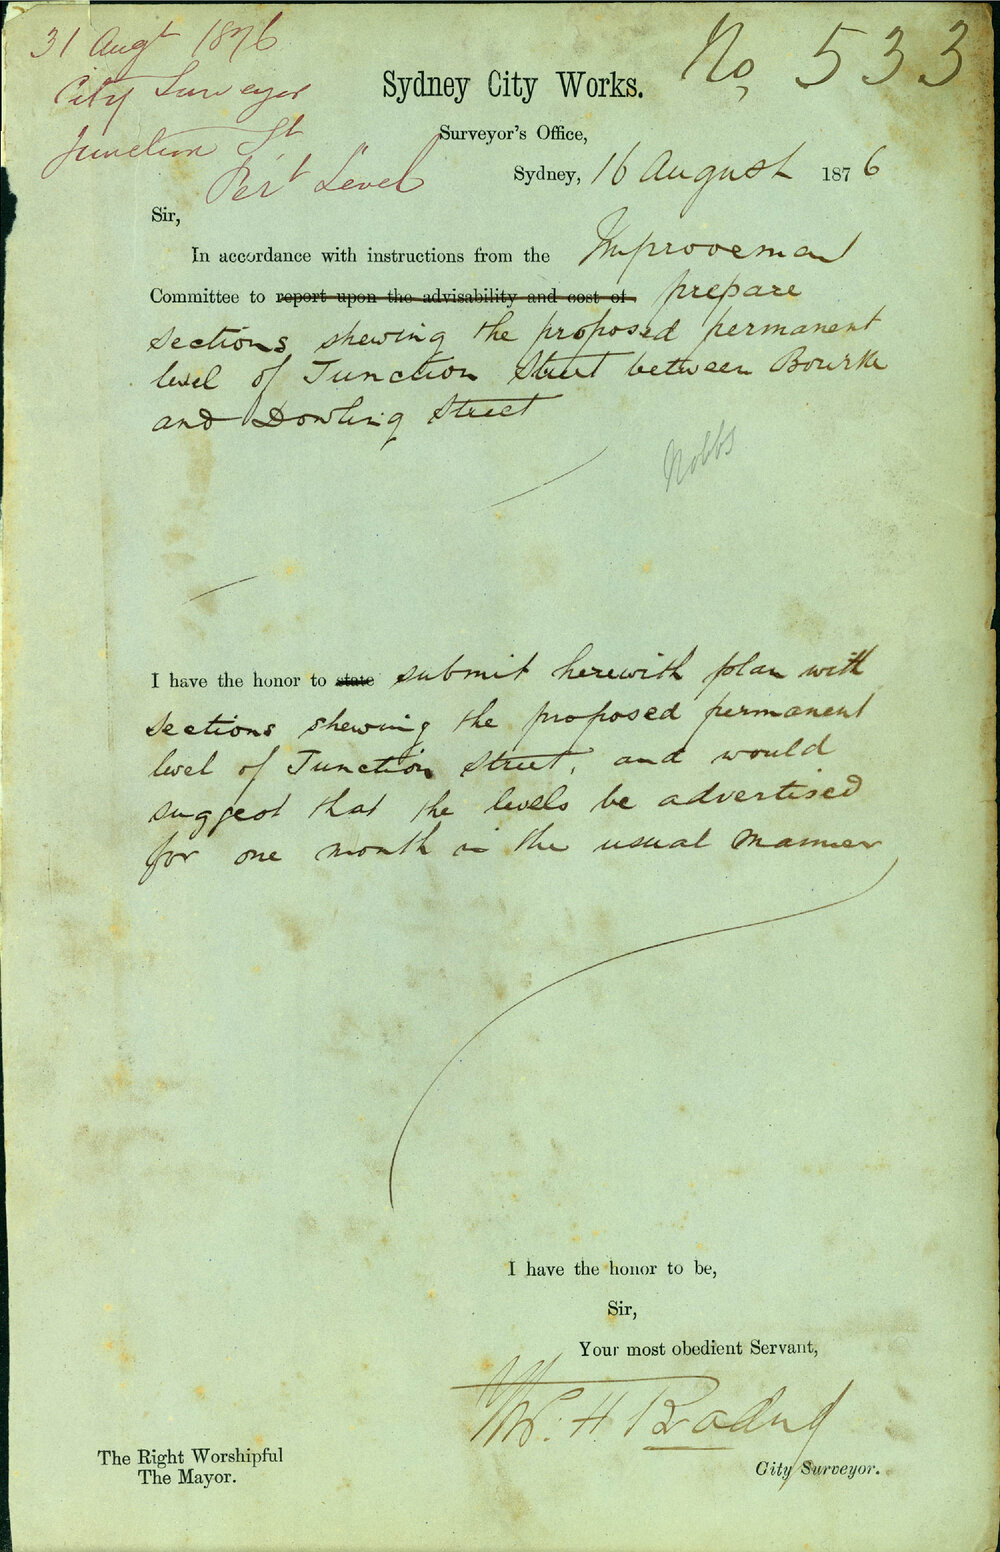 31 Augt 1876
City Surveyor
Junction St
Per't Level
No 533
Sydney City Works.
Surveyor's Office,
Sydney, 16 August 1876
Sir,
In accordance with instructions from the Improvement
Committee to report upon the advisability and cost of prepare
sections shewing the proposed permanent
level of Junction Street between Bourke
and Dowling Street
Nobbs
I have the honor to state submit herewith plan with
sections shewing the proposed permanent
level of Junction Street, and would
suggest that the levels be advertised
for one month in the usual manner
I have the honor to be,
Sir,
Your most obedient Servant,
City Surveyor.
The Right Worshipful
The Mayor.